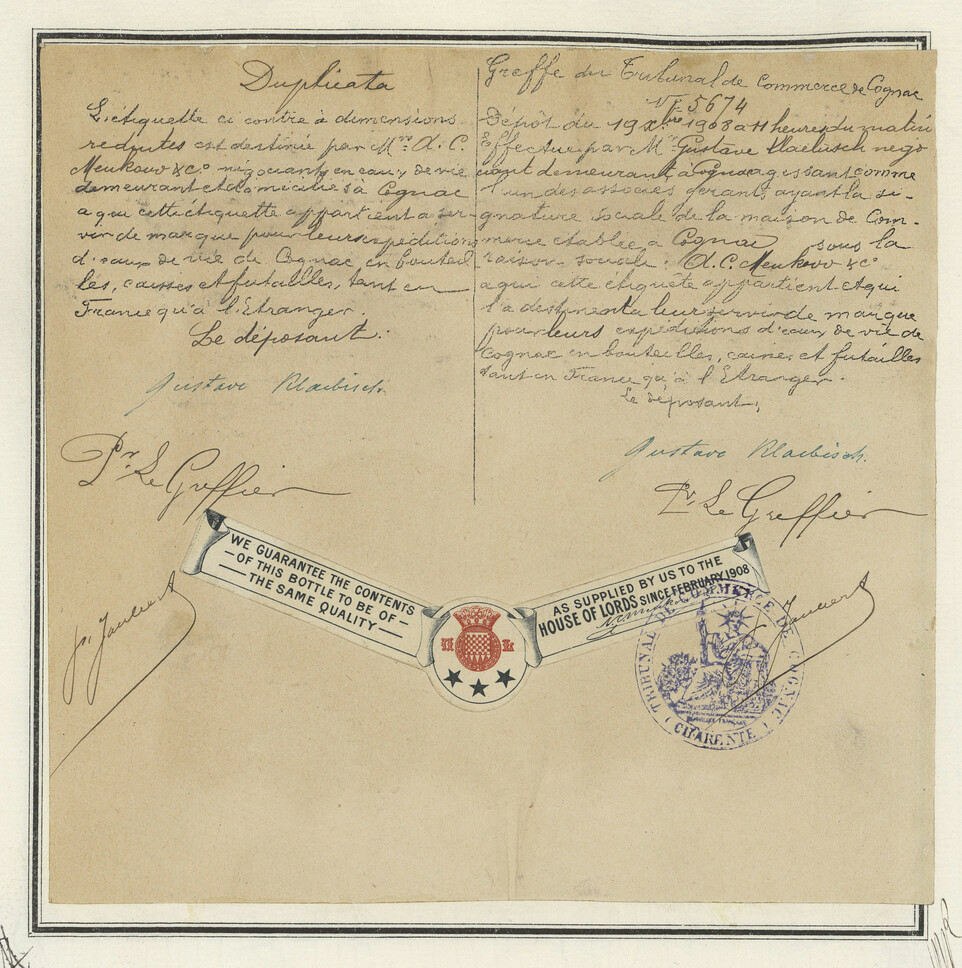 Duplicata
L'étiquette ci contre à dimensions
reduites est destinée par Mrs A. C.
Meukow & Co négociants en eaux de vie
demeurant et domiciliés à Cognac
a qui cette étiquette appartient a ser-
vir de marque pour leurs expéditions
d'eaux de vie de Cognac en bouteil
les, caisses et futailles, tant en
France qu'à l'Etranger.
Le déposant:
Gustave Klaebisch.
Pr Le Greffier
Greffe du Tribunal de Commerce de Cognac
No 5674
Dépôt du 19 Xbre 1908 a 11 heures du matin
Effectué par Mr Gustave Klaebisch nego
ciant demeurant à Cognac agissant comme
l'un des associés gérants ayant la si-
gnature sociale de la maison de Com-
merce etablie a Cognac sous la
raison sociale: A. C. Meukow & Co
a qui cette étiquete appartient et qui
l'a destine a leur servir de marque
pour leurs expéditions d'eaux de vie de
Cognac en bouteilles, caisses et futailles
tant en France qu'à l'Etranger.
le déposant,
Gustave Klaebisch.
Pr Le Greffier
WE GUARANTEE THE CONTENTS
— OF THIS BOTTLE TO BE OF —
THE SAME QUALITY
AS SUPPLIED BY US TO THE
HOUSE OF LORDS SINCE FEBRUARY 1908
TRIBUNAL DE COMMERCE DE COGNAC
(CHARENTE)